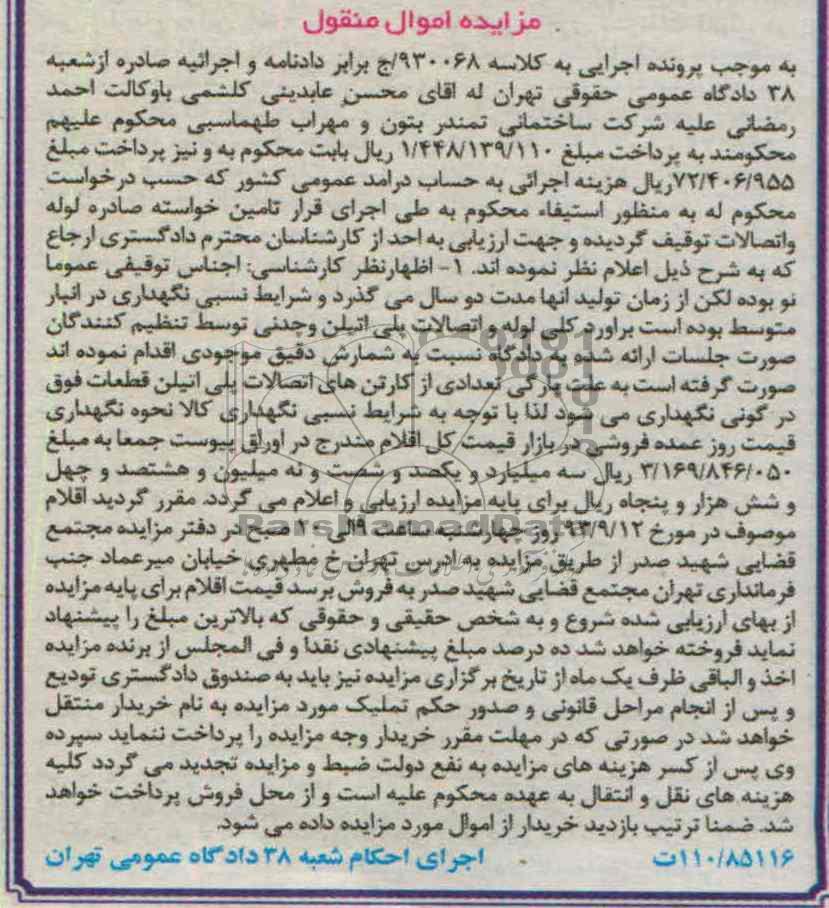 مزایده اموال منقول
به موجب پرونده اجرایی به کلاسه ۹۳۰۰۶۸/ج برابر دادنامه و اجرائیه صادره ازشعبه
۳۸ دادگاه عمومی حقوقی تهران له اقای محسن عابدینی کلشمی باوکالت احمد
رمضانی علیه شرکت ساختمانی تمندر بتون و مهراب طهماسبی محکوم علیهم
محکومند به پرداخت مبلغ ۱/۴۴۸/۱۳۹/۱۱۰ ریال بابت محکوم به و نیز پرداخت مبلغ
۷۲/۴۰۶/۹۵۵ریال هزینه اجرائی به حساب درامد عمومی کشور که حسب درخواست
محکوم له به منظور استیفاء محکوم به طی اجرای قرار تامین خواسته صادره لوله
واتصالات توقیف گردیده و جهت ارزیابی به احد از کارشناسان محترم دادگستری ارجاع
که به شرح ذیل اعلام نظر نموده اند. ۱- اظهارنظر کارشناسی: اجناس توقیفی عموما
نو بوده لکن از زمان تولید انها مدت دو سال می گذرد و شرایط نسبی نگهداری در انبار
متوسط بوده است براورد کلی لوله و اتصالات پلی اتیلن وچدنی توسط تنظیم کنندگان
صورت جلسات ارائه شده به دادگاه نسبت به شمارش دقیق موجودی اقدام نموده اند
صورت گرفته است به علت پارگی تعدادی از کارتن های اتصالات پلی اتیلن قطعات فوق
در گونی نگهداری می شود لذا با توجه به شرایط نسبی نگهداری کالا نحوه نگهداری
قیمت روز عمده فروشی در بازار قیمت کل اقلام مندرج در اوراق پیوست جمعا به مبلغ
۳/۱۶۹/۸۴۶/۰۵۰ ریال سه میلیارد و یکصد و شصت و نه میلیون و هشتصد و چهل
و شش هزار و پنجاه ریال برای پایه مزایده ارزیابی و اعلام می گردد. مقرر گردید اقلام
موصوف در مورخ ۹۳/۹/۱۲ روز چهارشنبه ساعت ۹الی ۱۰ صبح در دفتر مزایده مجتمع
قضایی شهید صدر از طریق مزایده به ادرس تهران خ مطهری خیابان میرعماد جنب
فرمانداری تهران مجتمع قضایی شهید صدر به فروش برسد قیمت اقلام برای پایه مزایده
از بهای ارزیابی شده شروع و به شخص حقیقی و حقوقی که بالاترین مبلغ را پیشنهاد
نماید فروخته خواهد شد ده درصد مبلغ پیشنهادی نقدا و فی المجلس از برنده مزایده
اخذ و الباقی ظرف یک ماه از تاریخ برگزاری مزایده نیز باید به صندوق دادگستری تودیع
و پس از انجام مراحل قانونی و صدور حکم تملیک مورد مزایده به نام خریدار منتقل
خواهد شد در صورتی که در مهلت مقرر خریدار وجه مزایده را پرداخت ننماید سپرده
وی پس از کسر هزینه های مزایده به نفع دولت ضبط و مزایده تجدید می گردد کلیه
هزینه های نقل و انتقال به عهده محکوم علیه است و از محل فروش پرداخت خواهد
شد. ضمنا ترتیب بازدید خریدار از اموال مورد مزایده داده می شود.
۱۱۰/۸۵۱۱۶ت اجرای احکام شعبه ۳۸ دادگاه عمومی تهران
ParsNamadData